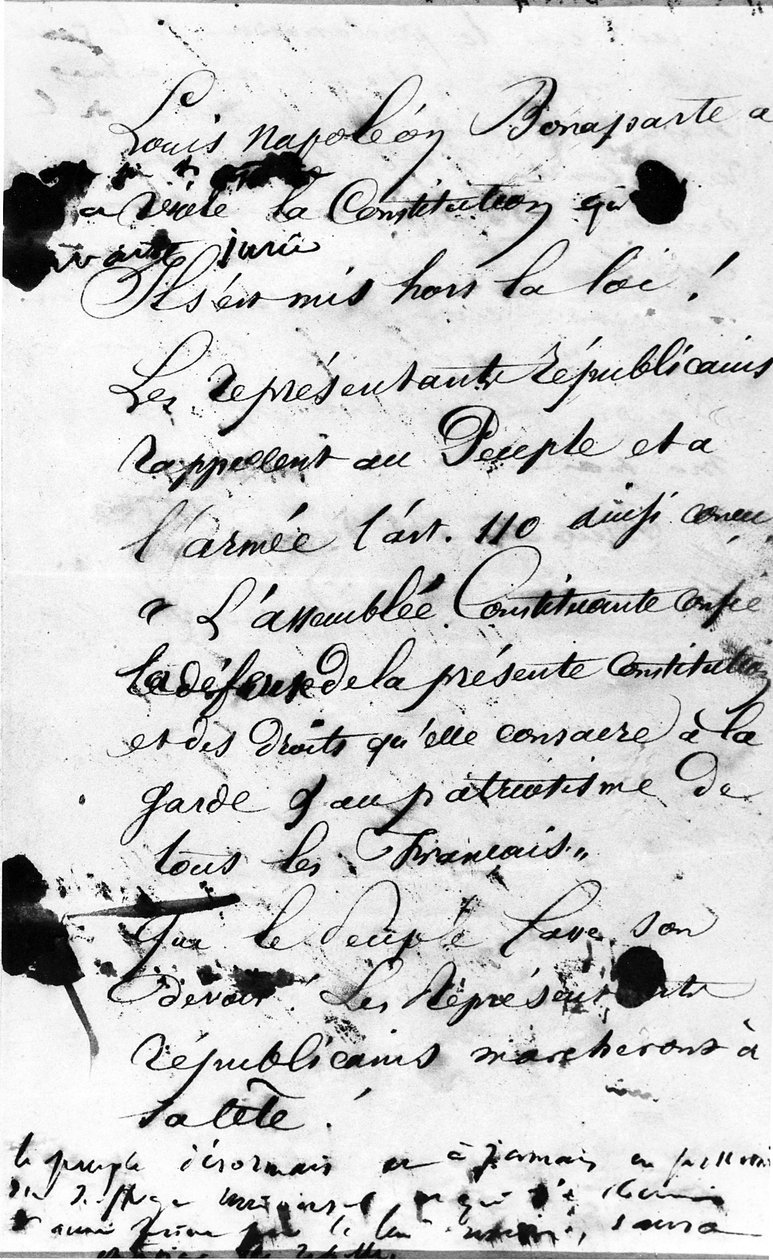 Louis Napoléon Bonaparte a
a violé la Constitution qu
avait juré
Il s'est mis hors la loi !
Les représentants républicains
rappellent au Peuple et a
l'armée l'art. 110 ainsi concu
" L'assemblée Constituante confie
la défense de la présente Constitution
et des droits qu'elle consacre à la
garde & au patriotisme de
tous les Francais "
Que le peuple fasse son
devoir ! Les Représentants
républicains marcheront à
sa tête !
le peuple désormais et à jamais en possession
du suffrage universel et qui n'a